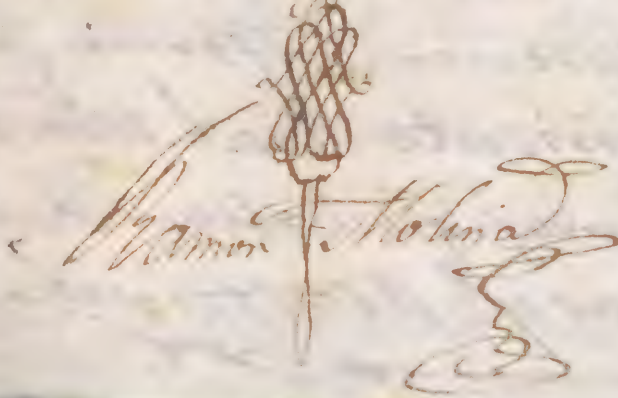 Ramon F. Molina